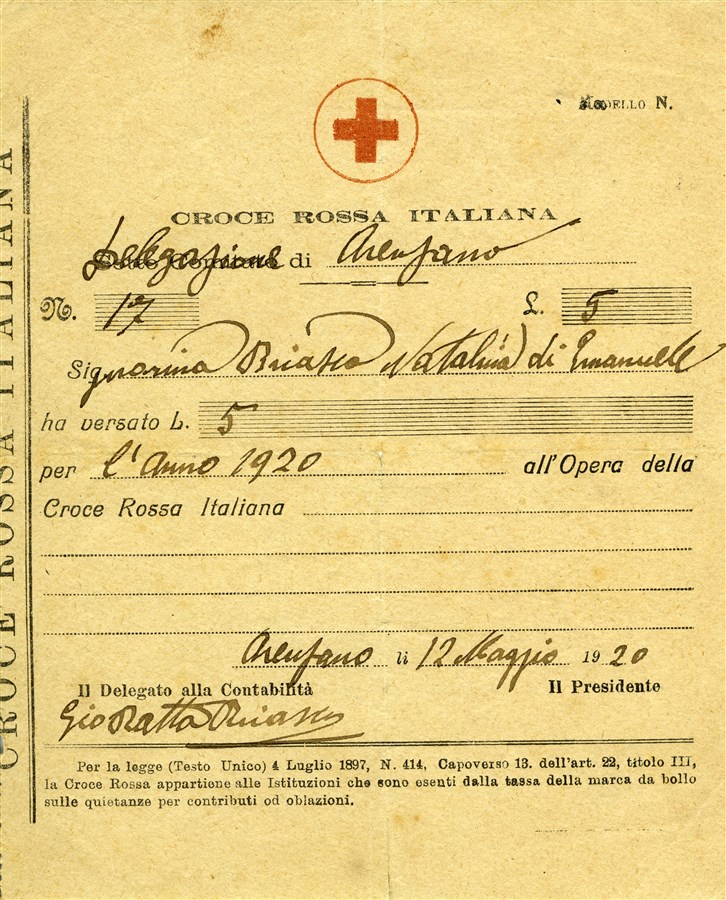 MODELLO N.
CROCE ROSSA ITALIANA
Delegazione
Sotto Comitato di Arenzano
N. 17 L. 5
Signorina Briasco Natalina di Emanuele
ha versato L. 5
per l'Anno 1920 all'Opera della
Croce Rossa Italiana
Arenzano li 12 Maggio 1920
Il Delegato alla Contabilità Il Presidente
Gio Batta Briasco
Per la legge (Testo Unico) 4 Luglio 1897, N. 414, Capoverso 13. dell'art. 22, titolo III,
la Croce Rossa appartiene alle Istituzioni che sono esenti dalla tassa della marca da bollo
sulle quietanze per contributi od oblazioni.
CROCE ROSSA ITALIANA